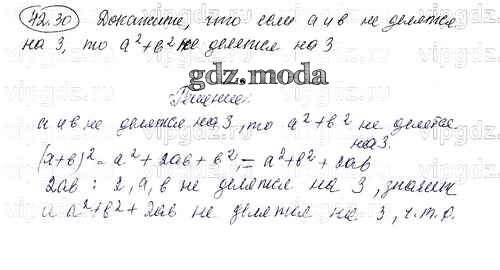 42.30 Докажите, что если a и в не делятся
на 3, то a²+в² не делятся на 3
gdz.moda
Решение:
a и в не делятся на 3, то a²+в² не делятся
на 3.
(a+в)² = a² + 2aв + в², = a²+в² + 2aв
2aв : 2, a, в не делятся на 3, значит
и a²+в² + 2aв не делятся на 3, ч.т.д.